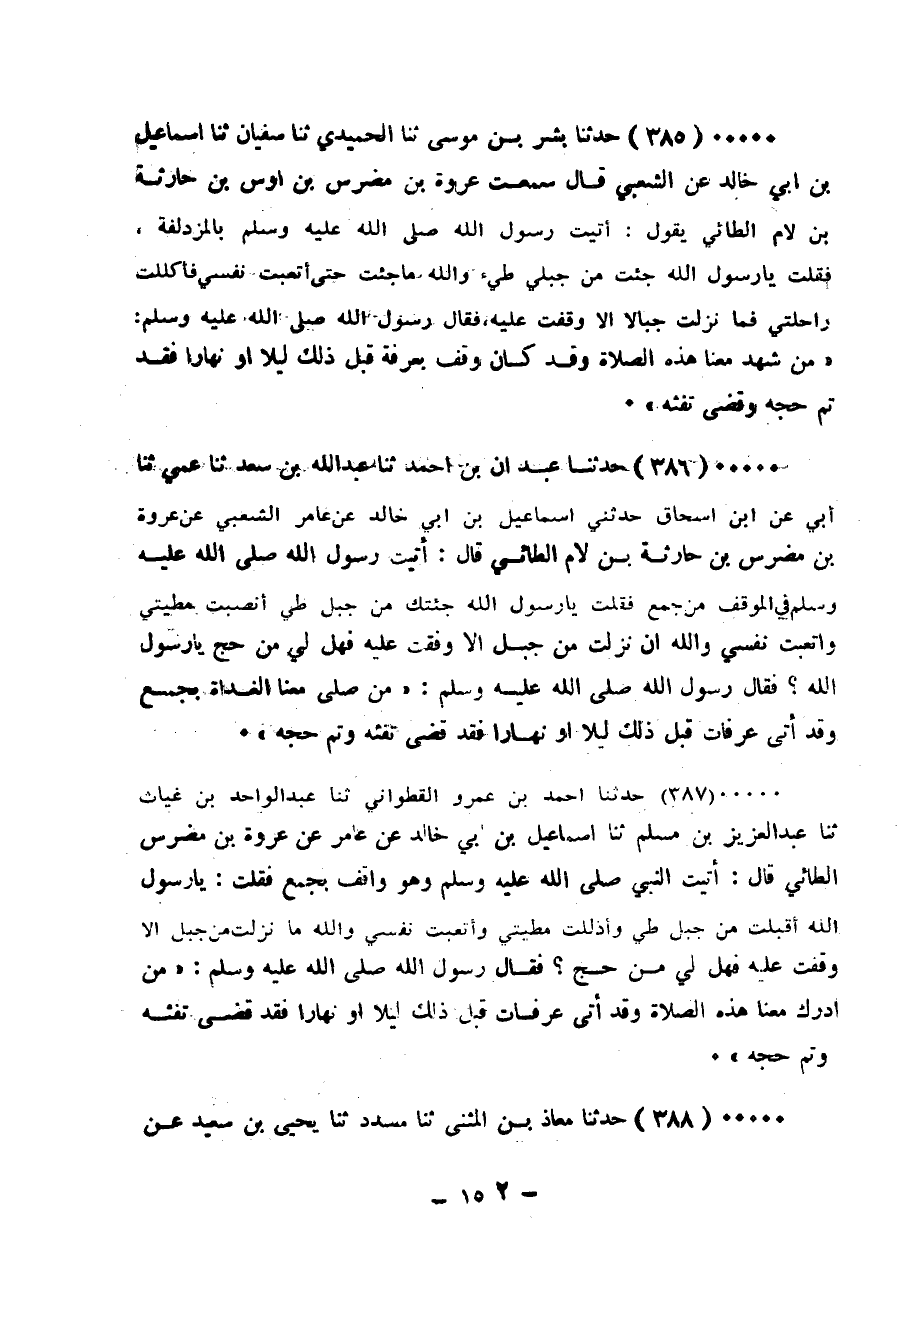 ٠٠٠٠٠ ( ٣٨٥ ) حدثنا بشر بـن موسى ثنا الحميدي ثنا سفيان ثنا اسماعيل
بن ابي خالد عن الشعبي قـال سمعت عروة بن مضرس بن اوس بن حارثـة
بن لام الطائي يقول : أتيت رسول الله صلى الله عليه وسلم بالمزدلفة ،
فقلت يارسول الله جئت من جبلي طيء والله ماجئت حتى أتعبت نفسي فأكللت
راحلتي فما نزلت جبالا الا وقفت عليه، فقال رسول الله صلى الله عليه وسلم:
« من شهد معنا هذه الصلاة وقـد كـان وقف بعرفة قبل ذلك ليلا او نهارا فقـد
تم حجه وقضى تفثه » ٠
٠٠٠٠٠ ( ٣٨٦ ) حدثنـا عبـد ان بن احمد ثنا عبدالله بن سعد ثنا عمي ثنا
أبي عن ابن اسحاق حدثني اسماعيل بن ابي خالد عن عامر الشعبي عن عروة
بن مضرس بن حارثـة بـن لام الطائـي قال : أتيت رسول الله صلى الله عليـه
وسلم في الموقف من جمع فقلت يارسول الله جئتك من جبل طي أنصبت مطيتي
واتعبت نفسي والله ان نزلت من جبـل الا وفقت عليه فهل لي من حج يارسول
الله ؟ فقال رسول الله صلى الله عليـه وسلم : « من صلى معنا الغـداة بجمـع
وقد أتى عرفات قبل ذلك ليلا او نهـارا فقد قضى تفثه وتم حجه » ٠
٠٠٠٠٠ (٣٨٧) حدثنا احمد بن عمرو القطواني ثنا عبدالواحد بن غياث
ثنا عبدالعزيز بن مسلم ثنا اسماعيل بن ابي خالد عن عامر عن عروة بن مضرس
الطائي قال : أتيت النبي صلى الله عليه وسلم وهو واقف بجمع فقلت : يارسول
الله أقبلت من جبل طي وأذللت مطيتي وأتعبت نفسي والله ما نزلت من جبل الا
وقفت عليه فهل لي مـن حـج ؟ فقـال رسول الله صلى الله عليه وسلم : « من
ادرك معنا هذه الصلاة وقد أتى عرفـات قبل ذالك ليلا او نهارا فقد قضـى تفثـه
وتم حجه » ٠
٠٠٠٠٠ ( ٣٨٨ ) حدثنا معاذ بـن المثنى ثنا مسدد ثنا يحيى بن سعيد عـن
– ١٥٢ –